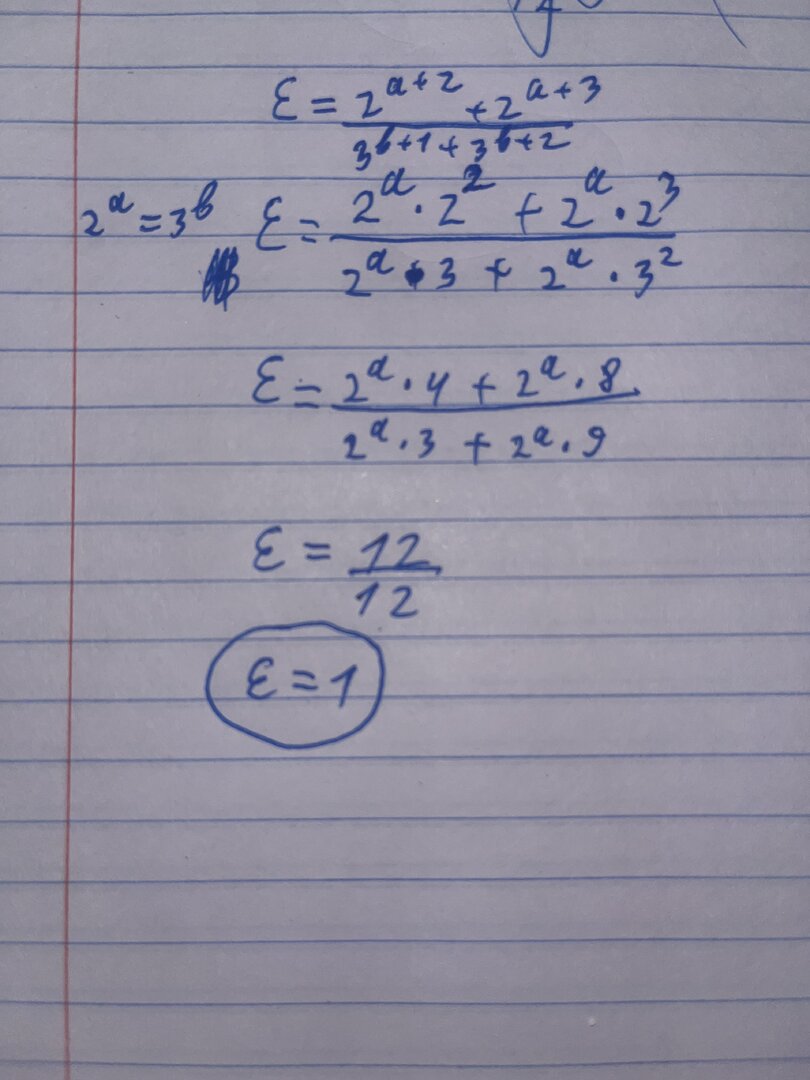 ε = (2^(a+2) + 2^(a+3)) / (3^(b+1) + 3^(b+2))
2^a = 3^b ε = (2^a · 2^2 + 2^a · 2^3) / (2^a · 3 + 2^a · 3^2)
ε = (2^a · 4 + 2^a · 8) / (2^a · 3 + 2^a · 9)
ε = 12 / 12
ε = 1